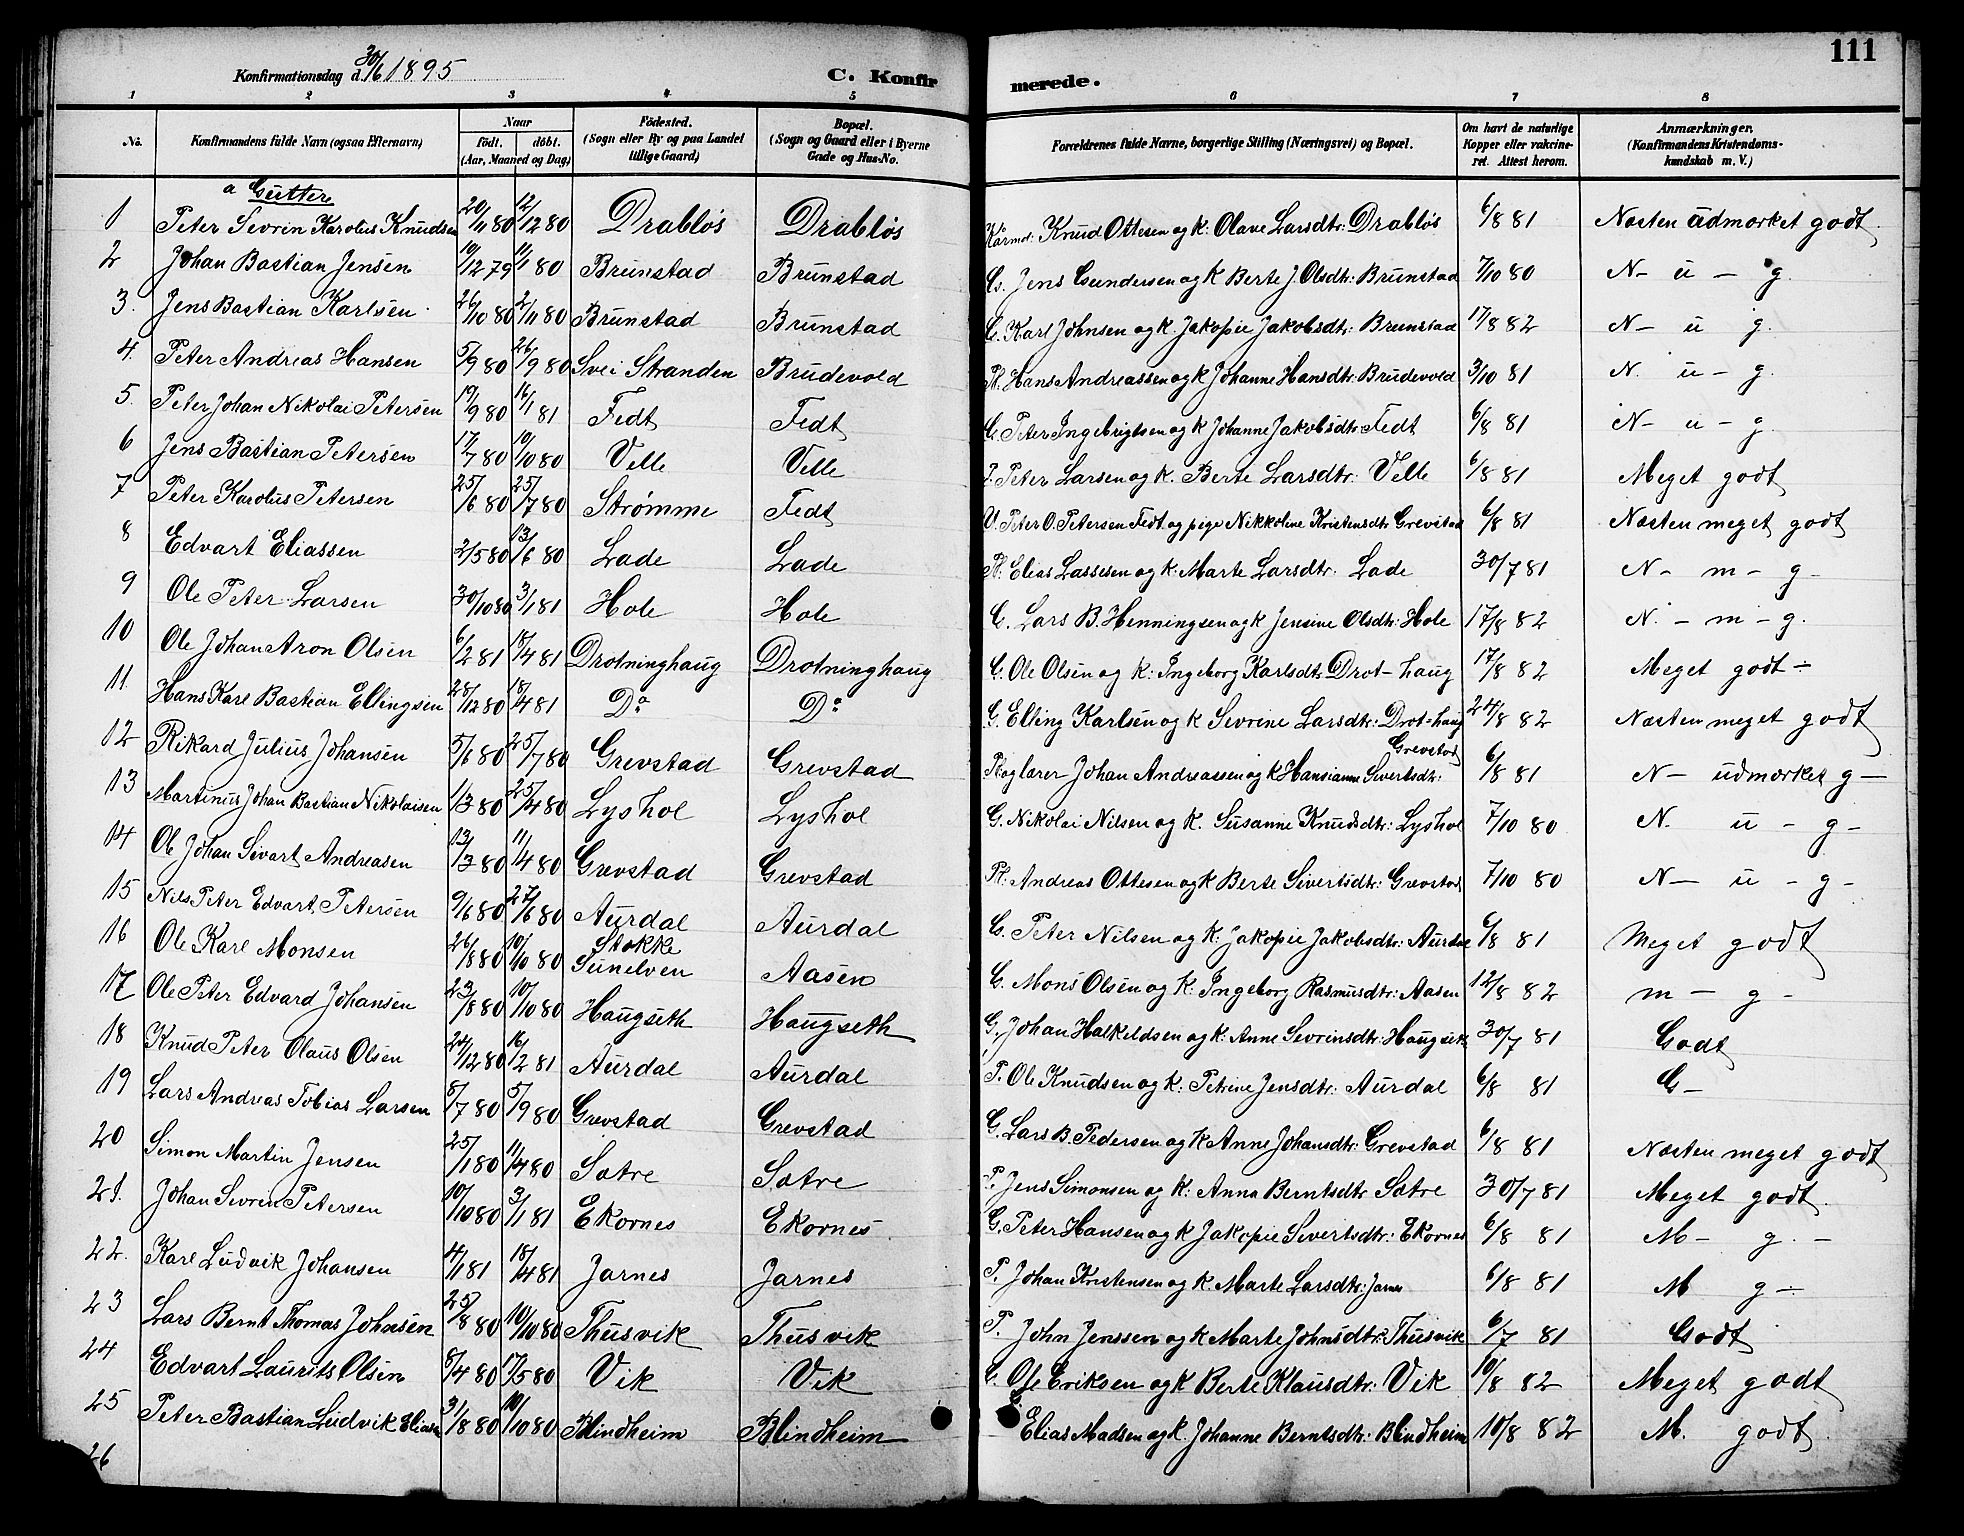 111
Konfirmationsdag d. 30/6 1895 C. Konfirmerede.
1 2 3 4 5 6 7 8
No. Konfirmandens fulde Navn (ogsaa Efternavn) Naar födt. döbt. (Aar, Maaned og Dag) Födested. (Sogn eller By og paa Landet tillige Gaard) Bopæl. (Sogn og Gaard eller i Byerne Gade og Hus-No. Forældrenes fulde Navne, borgerlige Stilling (Næringsvei) og Bopæl. Om havt de naturlige Kopper eller vakcineret. Attest herom. Anmærkninger. (Konfirmandens Kristendomskundskab m. V.)
a Gutter
1 Peter Sevrin Karolus Knudsen 20/11 80 12/12 80 Drabløs Drabløs Kårmd: Knud Ottesen og k: Olave Larsdtr: Drabløs 6/8 81 Næsten udmærket godt.
2 Johan Bastian Jensen 19/12 79 11/1 80 Brunstad Brunstad G. Jens Gundersen og K Berte J. Olsdtr: Brunstad 7/10 80 N- u - g.
3. Jens Bastian Karlsen 26/10 80 2/11 80 Brunstad Brunstad G. Karl Johnsen og K. Jakopie Jakobsdtr: Brunstad 17/8 82 N- u g.
4. Peter Andreas Hansen 5/9 80 26/9 80 Svei Stranden Brudevold Pl. Hans Andreassen og K Johanne Hansdtr: Brudevold 3/10 81 N. u - g.
5. Peter Johan Nikolai Petersen 19/9 80 16/1 81 Fedt Fedt G. Peter Ingebrigtsen og K Johanne Jakobsdtr: Fedt 6/8 81 N- u - g.
6 Jens Bastian Petersen 17/7 80 10/10 80 Velle Velle I. Peter Larsen og K. Berte Larsdtr: Velle 6/8 81 Meget godt
7 Peter Karolus Petersen 25/6 80 25/7 80 Strømme Fedt U. Peter O. Petersen Fedt og pige Nikkoline Kristensdtr Grevstad 6/8 81 Næsten meget godt
8 Edvart Eliassen 2/5 80 13/6 80 Lade Lade Pl. Elias Lassesen og K: Marte Larsdtr. Lade 30/7 81 N- m - g -
9 Ole Peter Larsen 30/10 80 3/1 81 Hole Hole G. Lars B. Henningsen og K Jensine Olsdtr: Hole 17/8 82 N. - m - g.
10 Ole Johan Aron Olsen 6/2 81 18/4 81 Drotninghaug Drotninghaug G. Ole Olsen og K: Ingeborg Karlsdtr Drot-haug 17/8 82 Meget godt -
11. Hans Karl Bastian Ellingsen 28/12 80 18/4 81 Do Do G. Elling Karlsen og K Sevrine Larsdtr: Drot-haug 24/8 82 Næsten meget godt
12 Rikard Julius Johansen 5/6 80 25/7 80 Grevstad Grevstad Johan Andreassen og K Hansianne Sivertsdtr: Grevstad 6/8 81 N- udmærket g -
13 Martinus Johan Bastian Nikolaisen 1/3 80 25/4 80 Lyshol Lyshol G. Nikolai Nilsen og K. Susanne Knudsdtr: Lyshol 7/10 80 N. u - g -
14 Ole Johan Sivart Andreasen 13/3 80 11/4 80 Grevstad Grevstad Pl: Andreas Ottesen og K Berte Sivertsdtr: Grevstad 7/10 80 N - u - g -
15 Nils Peter Edvart Petersen 9/6 80 27/6 80 Aurdal Aurdal G. Peter Nilsen og K: Jakopie Jakobsdtr: Aurdal 6/8 81 Meget godt
16 Ole Karl Monsen 26/8 80 10/10 80 Stokke Sunelven Aasen G. Mons Olsen og K: Ingeborg Rasmusdtr: Aasen 12/8 82 m - g -
17 Ole Peter Edvard Johansen 23/8 80 10/10 80 Haugseth Haugseth G. Johan Halkeldsen og K: Anne Sevrinsdtr: Haugseth 30/7 81 Godt
18 Knud Peter Olaus Olsen 24/12 80 16/2 81 Aurdal Aurdal P. Ole Knudsen og K: Petrine Jensdtr: Aurdal 6/8 81 G -
19 Lars Andreas Tobias Larsen 8/7 80 5/9 80 Grevstad Grevstad G. Lars B. Pedersen og K Anne Johansdtr: Grevstad 6/8 81 Næsten meget godt
20 Simon Martin Jensen 25/1 80 11/4 80 Satre Satre P. Jens Simonsen og K: Anna Berntsdtr Satre 30/7 81 Meget godt.
21. Johan Sevren Petersen 10/10 80 3/1 81 Ekornes Ekornes G. Peter Hansen og K Jakopie Sivertsdtr: Ekornes 6/8 81 M - g. -
22. Karl Ludvik Johansen 4/1 81 18/4 81 Jarnes Jarnes P. Johan Kristensen og K Marte Larsdtr: Jarnes 6/8 81 M g -
23 Lars Bernt Thomas Johnsen 25/8 80 10/10 80 Thusvik Thusvik P. John Jenssen og K Marte Johnsdtr: Thusvik 6/7 81 Godt
24 Edvart Laurits Olsen 8/4 80 17/5 80 Vik Vik G. Ole Eriksen og K Berte Klausdtr: Vik 10/8 82 Meget godt
25 Peter Bastian Ludvik Eliasn 31/8 80 10/10 80 Blindheim Blindheim Elias Madsen og K. Johanne Berntsdtr: Blindheim 10/8 82 M. godt.
26